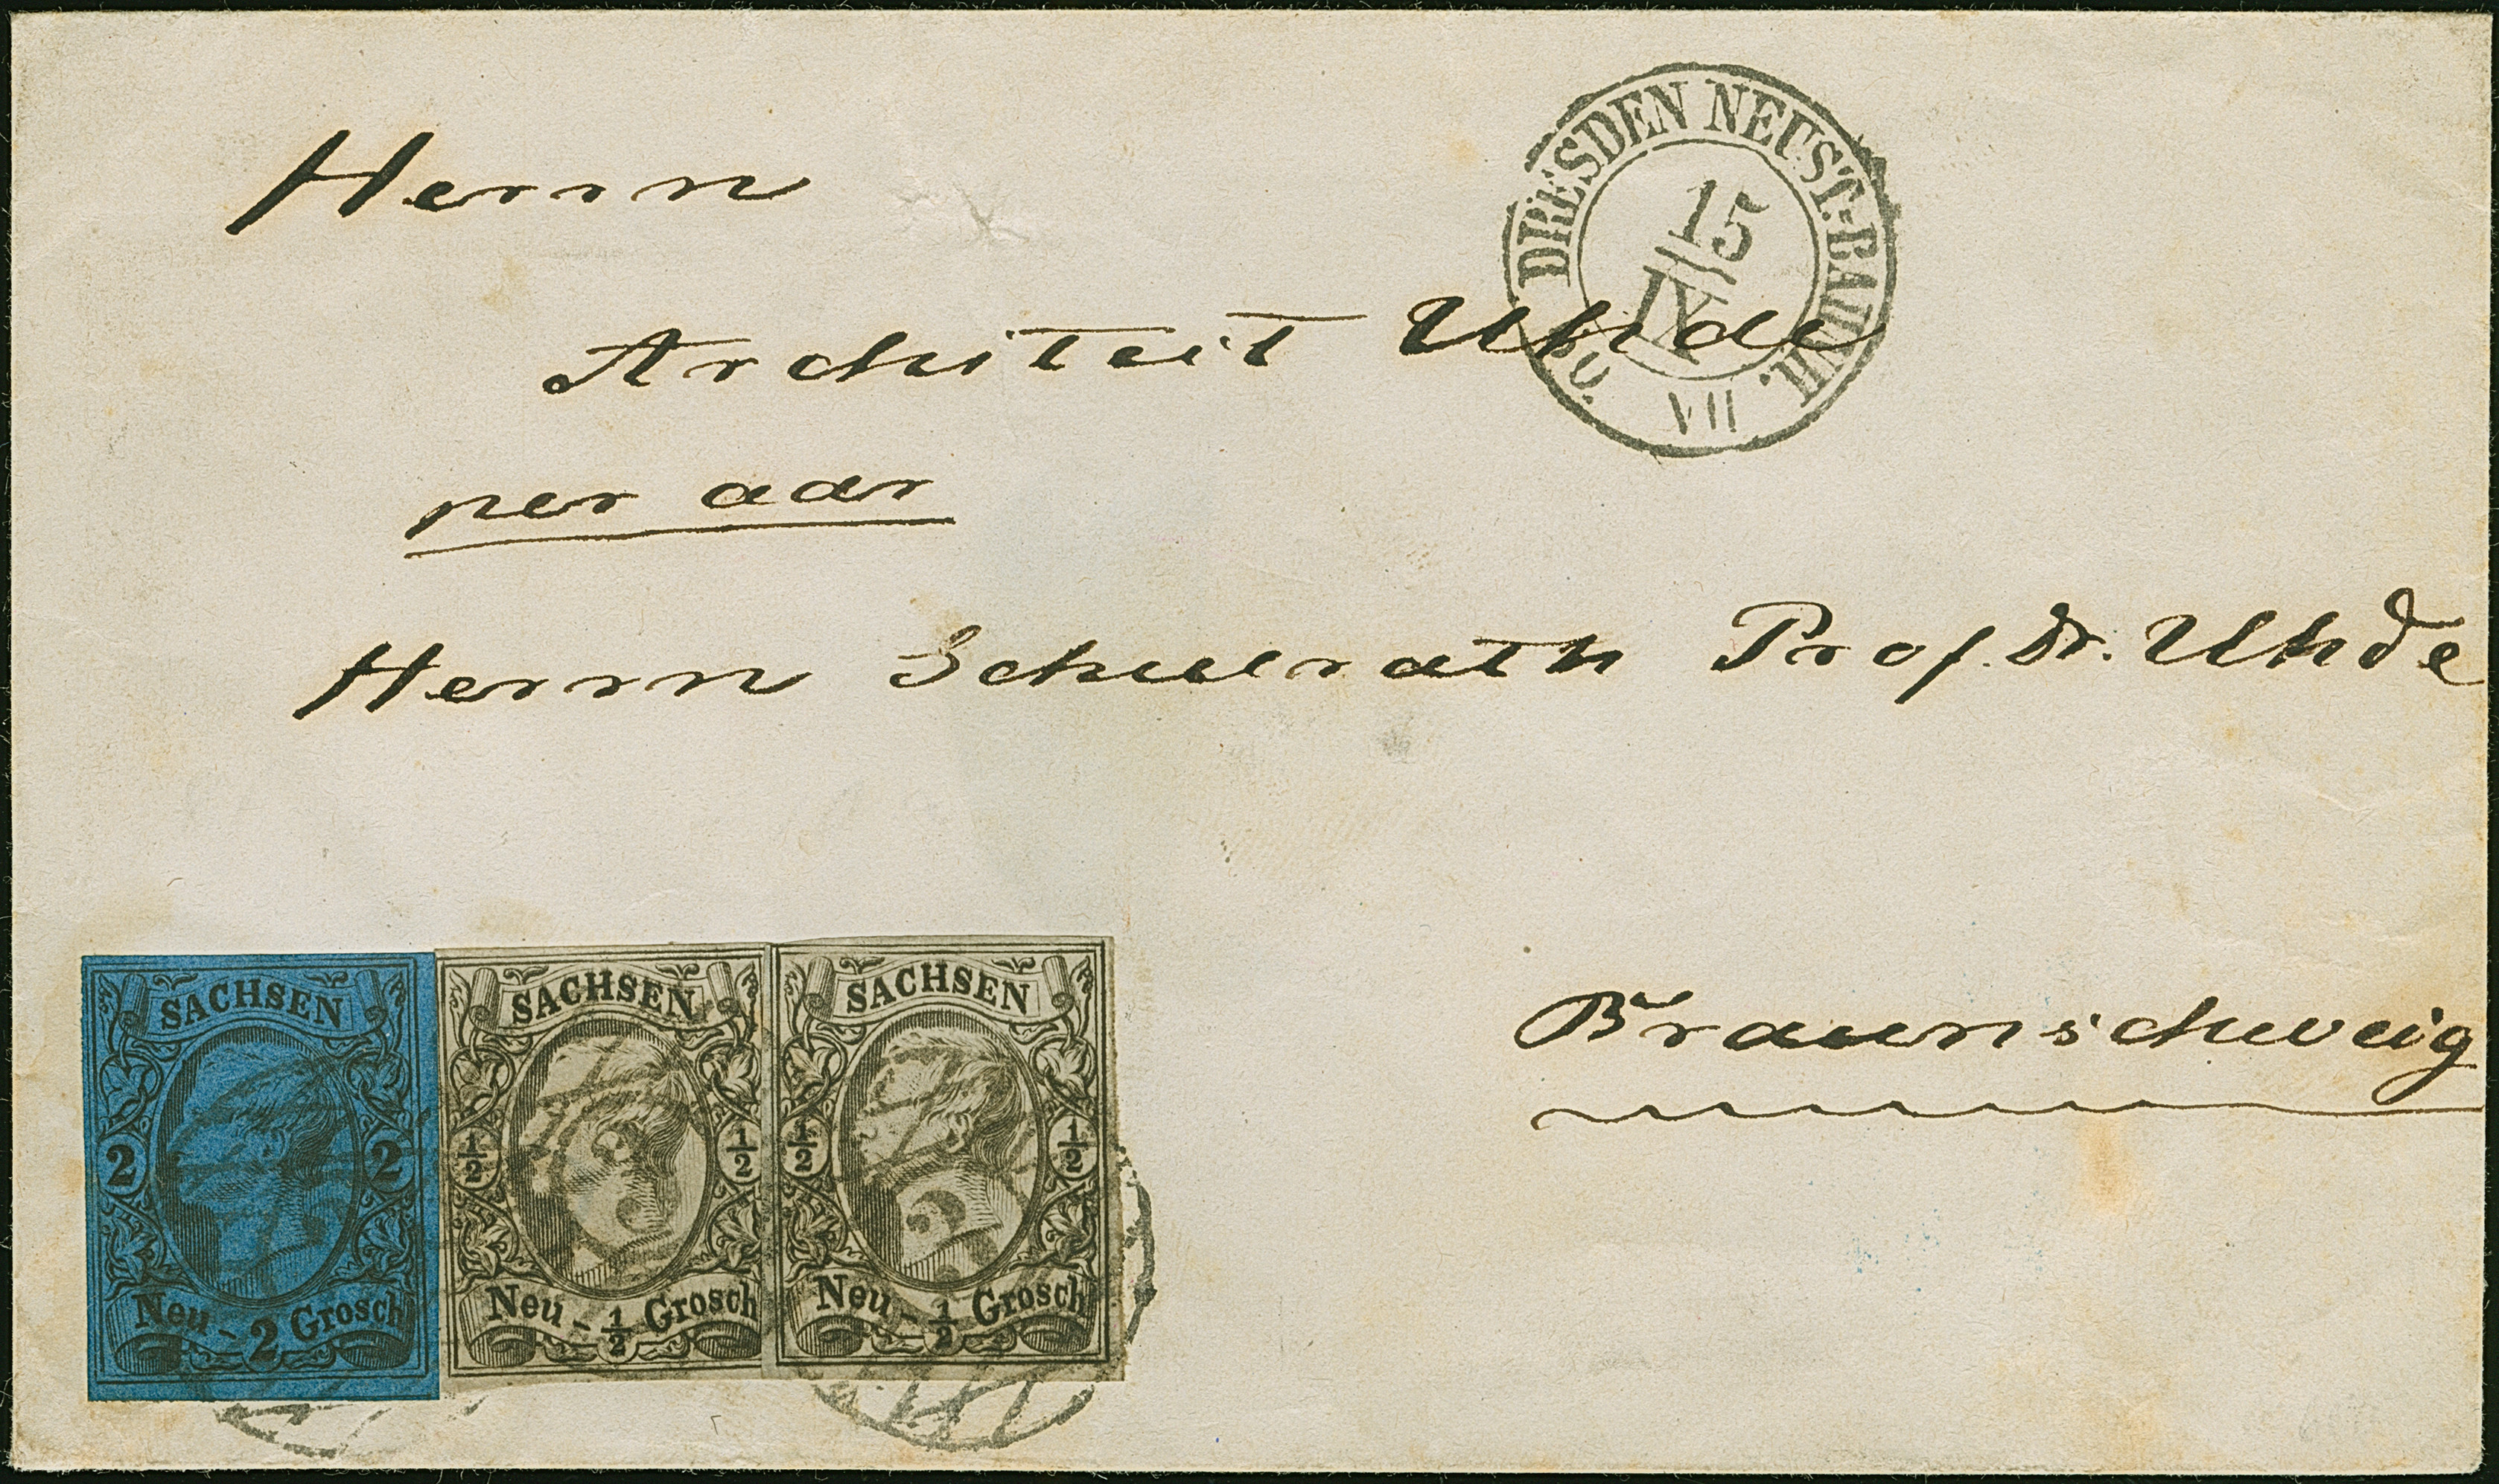 DRESDEN NEUST.-BAHNH.
15
IX
VII
Herrn
Architect Uhde
per adr
Herrn Schulrath Prof. Dr. Uhde
Braunschweig
SACHSEN
2 2
Neu - 2 Grosch
SACHSEN
½ ½
Neu - ½ Grosch
SACHSEN
½ ½
Neu - ½ Grosch